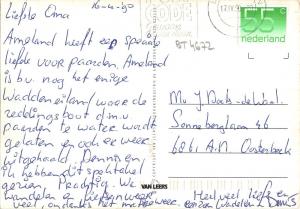 16-4-90
Liefste Oma
Ameland heeft een speciale
liefde voor paarden. Ameland
is b.v. nog het enige
waddeneiland waar de
reddingsboot d.m.v
paarden te water wordt
gelaten en ook er weer
uitgehaald. Dennis en
ik hebben dit spektakel
gezien. Prachtig. We
wandelen en fietsen weer
veel, ondanks het weer.
Heel veel liefs en
Dennis
CODE
55c
nederland
BT 4672
Mw J Doets-de Waal
Sonneberglaan 46
6861 A.N Oosterbeek
VAN LEERS